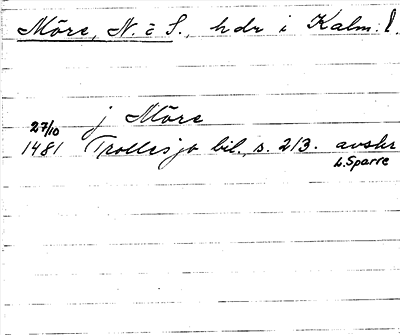 Möre, N. o S., hdr i Kalm. l.
j Möre
27/10
1481 Trollesjö bil. s. 213. avskr
L. Sparre